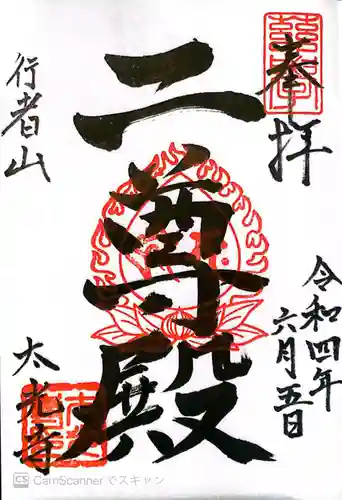 奉拝
令和四年
六月五日
二尊殿
行者山
太光寺
CS CamScanner でスキャン